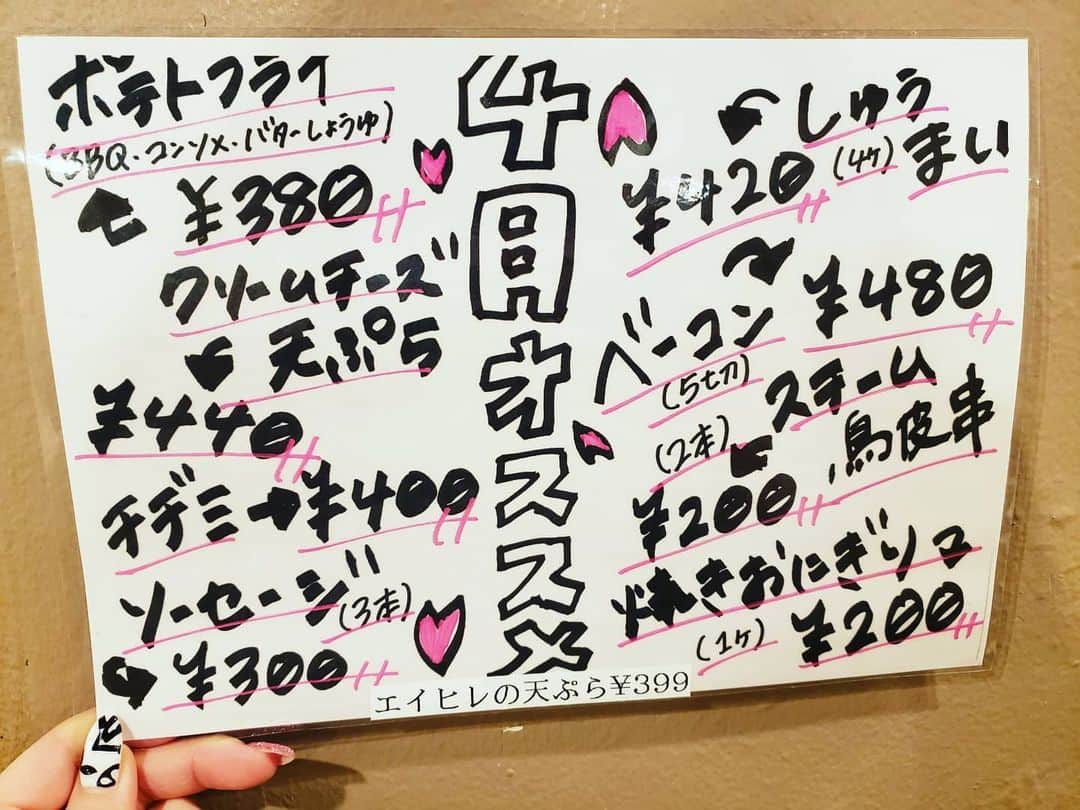 4月オススメ
しゅう
まい
(4ケ)
¥420
ベーコン
(5切)
¥480
スチーム
鳥皮串
(2本)
¥200
焼きおにぎり
(1ケ)
¥200
ポテトフライ
(BBQ・コンソメ・バターしょうゆ)
¥380
クリームチーズ
天ぷら
¥440
チヂミ→¥400
ソーセージ
(3本)
¥300
エイヒレの天ぷら¥399